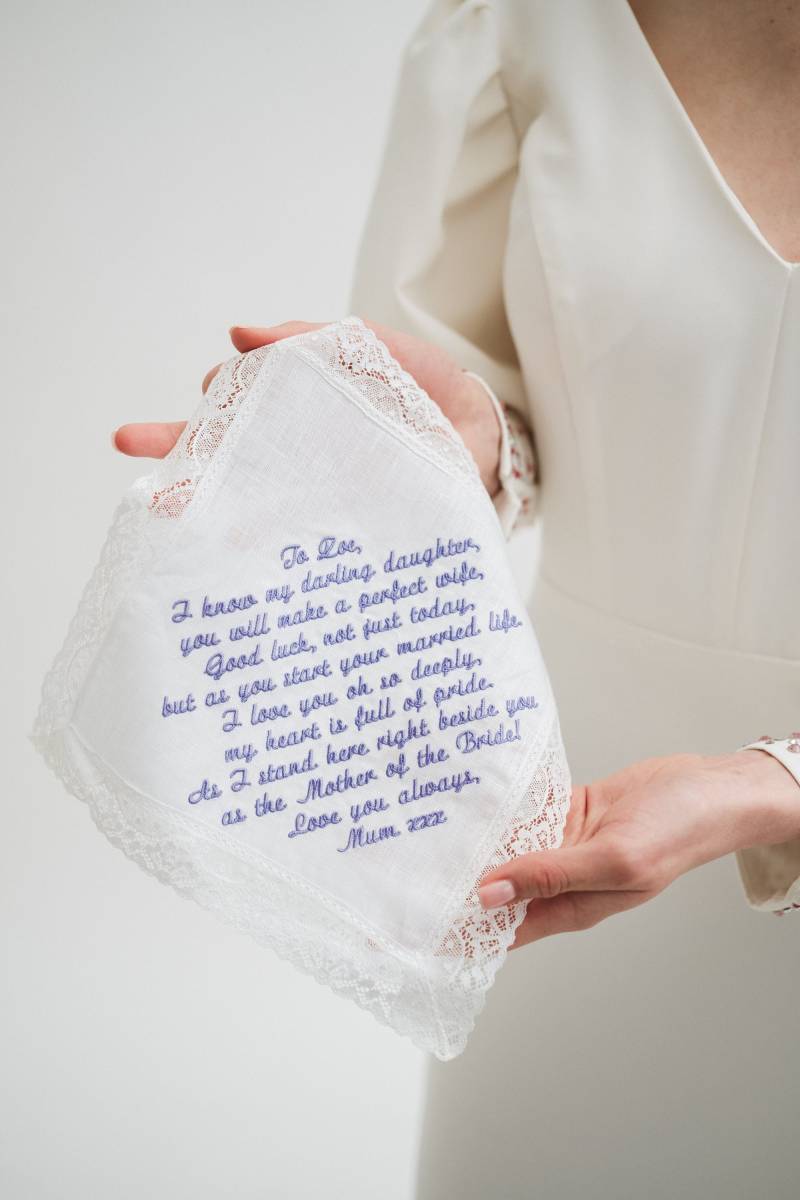 To Zoe,
I know my darling daughter,
you will make a perfect wife,
Good luck, not just today,
but as you start your married life.
I love you oh so deeply,
my heart is full of pride.
As I stand here right beside you
as the Mother of the Bride!
Love you always,
Mum xxx